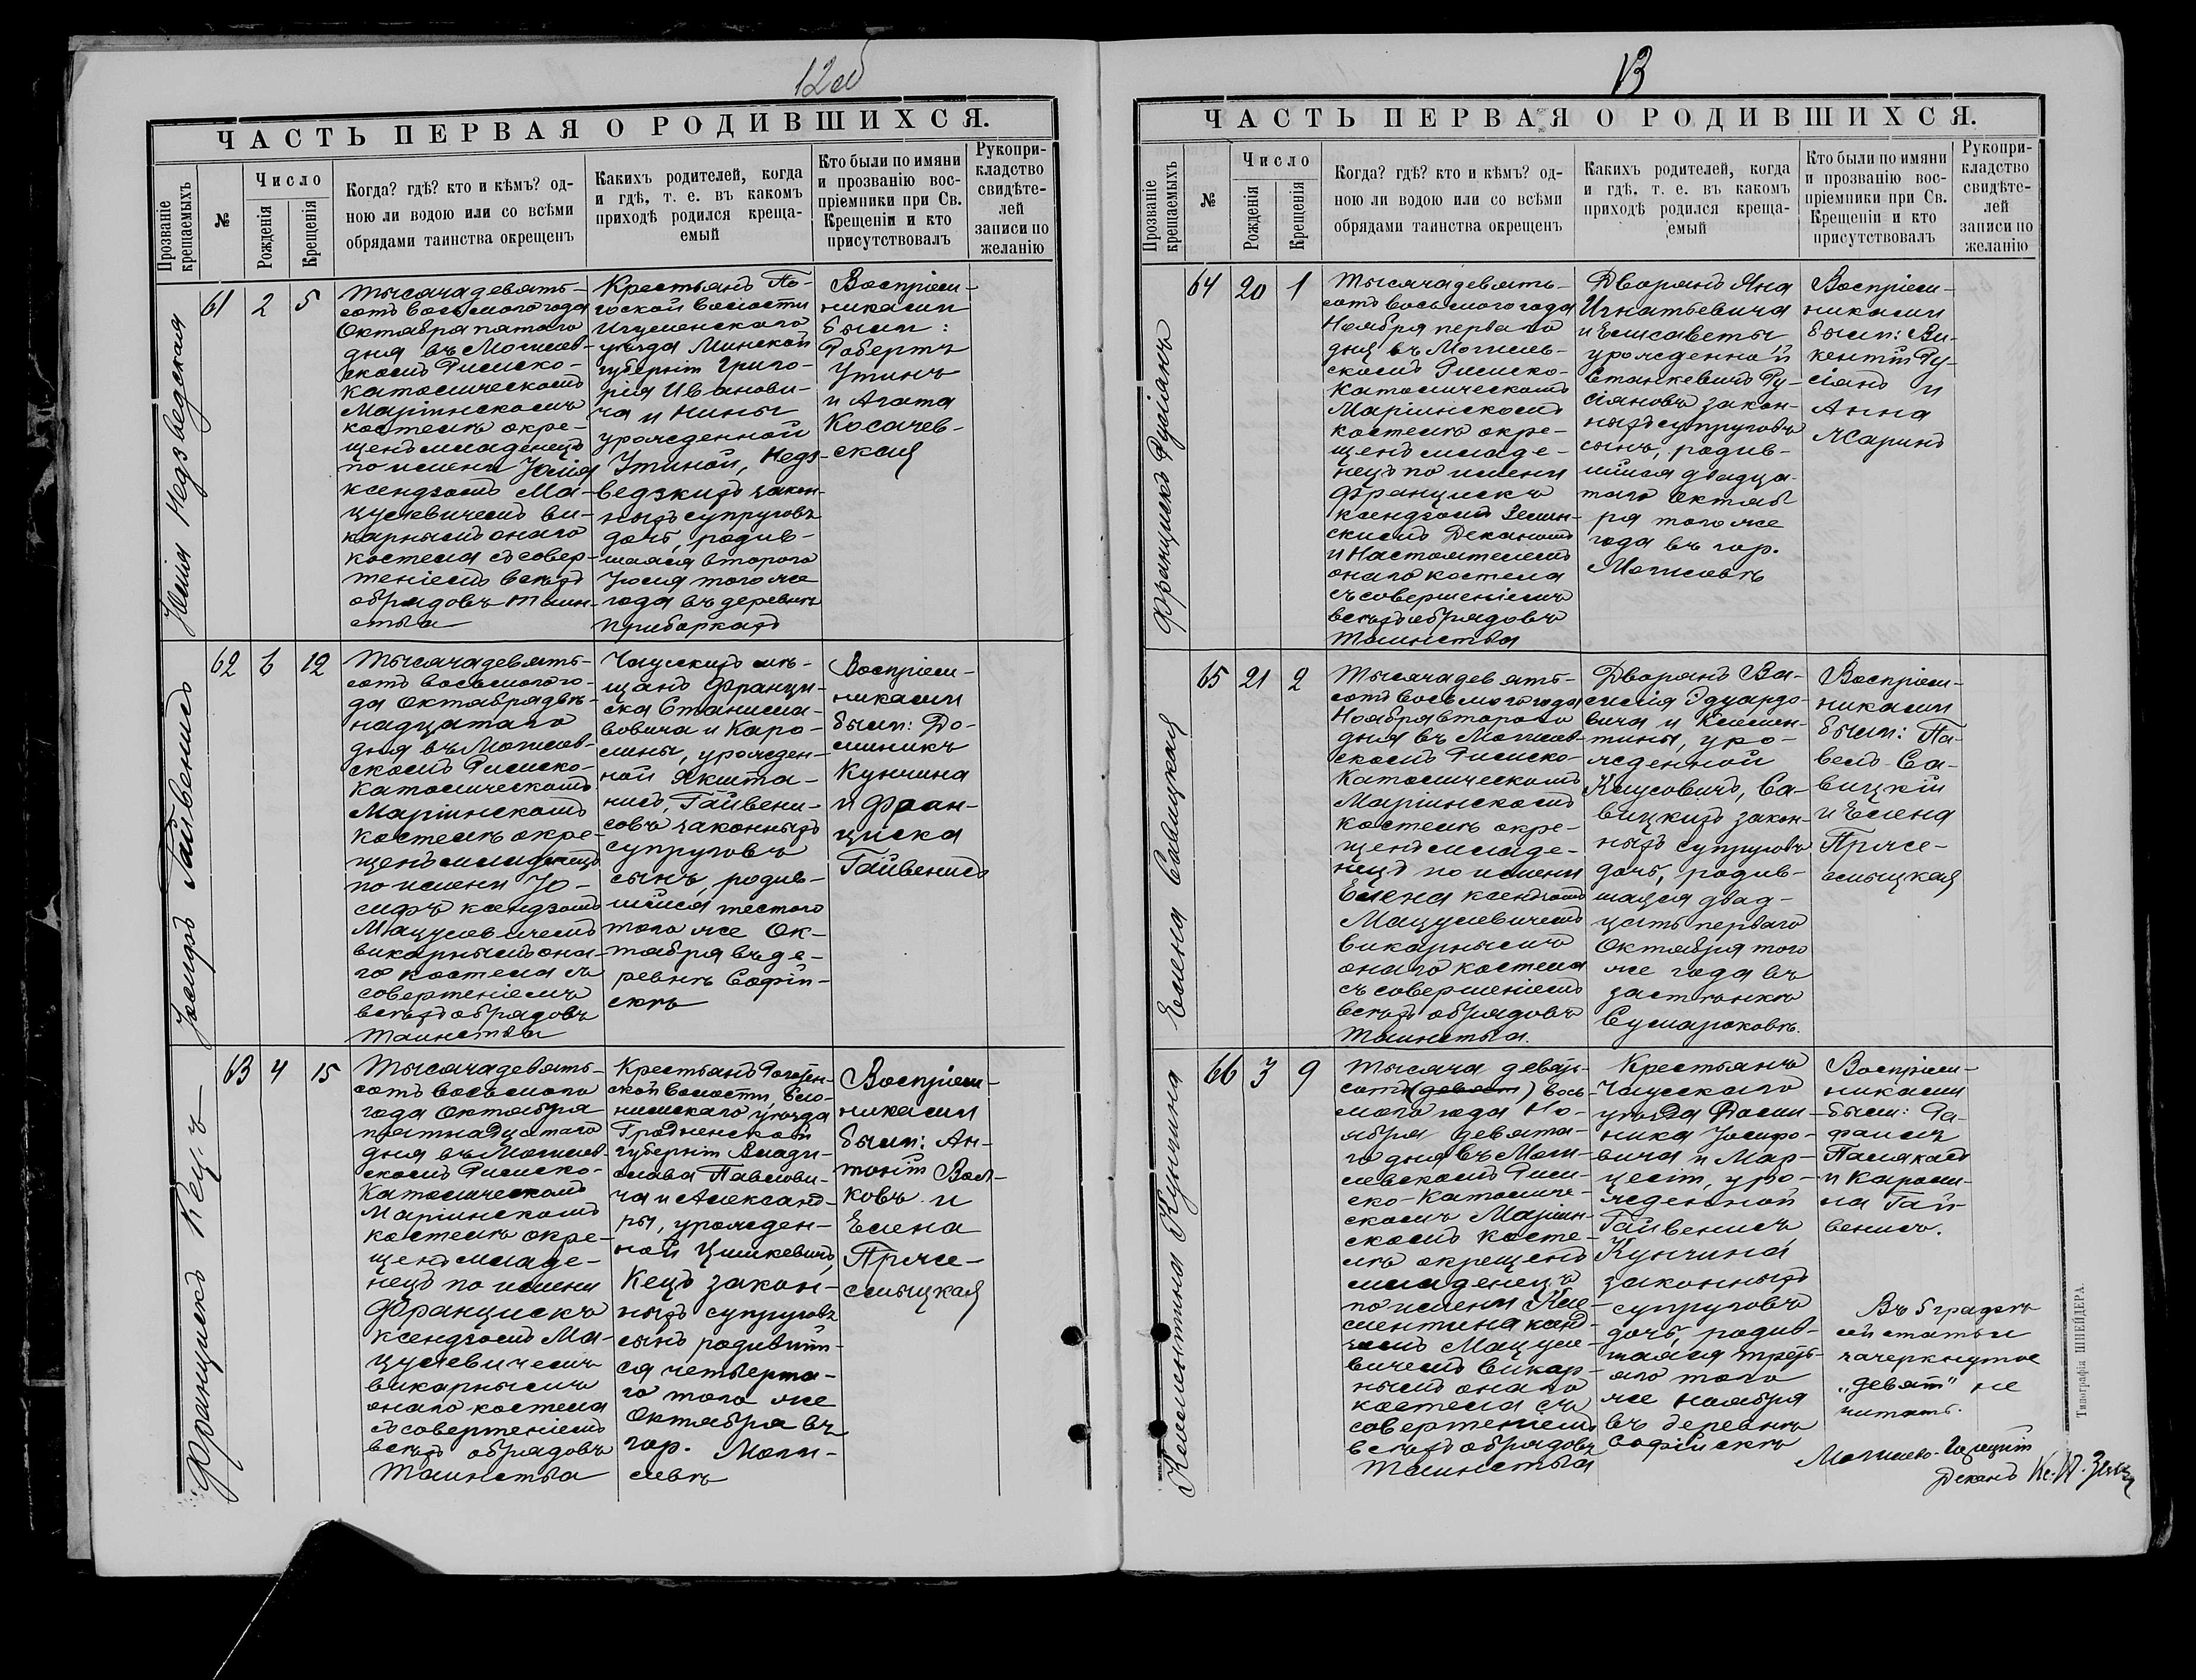 12об
ЧАСТЬ ПЕРВАЯ О РОДИВШИХСЯ.
Прозваніе крещаемыхъ
№
Число
Рожденія
Крещенія
Когда? гдѣ? кто и кѣмъ? од-
ною ли водою или со всѣми
обрядами таинства окрещенъ
Какихъ родителей, когда
и гдѣ, т. е. въ какомъ
приходѣ родился креща-
емый
Кто были по имяни
и прозванію вос-
пріемники при Св.
Крещеніи и кто
присутствовалъ
Рукопри-
кладство
свидѣте-
лей
записи по
желанію
Юлія Недзведзская
61
2
5
Тысяча девять-
сотъ восьмого года
Октября пятаго
дня въ Могилев-
скомъ Римско-
Католическомъ
Маріинскомъ
костелѣ окре-
щенъ младенецъ
по имени Юлія
ксендзомъ Ма-
цулевичемъ ви-
карнымъ онаго
костела съ совер-
шеніемъ всѣхъ
обрядовъ таин-
ства
Крестьянъ По-
гоской волости
Игуменскаго
уѣзда Минской
губерніи Григо-
рія Иванови-
ча и Нины
урожденной
Утиной, Недз-
ведзкихъ закон-
ныхъ супруговъ
дочь, родив-
шаяся второго
Іюля того же
года въ деревнѣ
Приборкахъ
Воспріем-
никами
были:
Робертъ
Утинъ
и Агата
Косачев-
ская
Іосифъ Гайвенисъ
62
6
12
Тысяча девять-
сотъ восьмого го-
да Октября двѣ-
надцатаго
дня въ Могилев-
скомъ Римско-
Католическомъ
Маріинскомъ
костелѣ окре-
щенъ младенецъ
по имени Іо-
сифъ ксендзомъ
Мацулевичемъ
викарнымъ она-
го костела съ
совершеніемъ
всѣхъ обрядовъ
таинства
Чаусскихъ мѣ-
щанъ Франци-
ска Станисла-
вовича и Каро-
лины, урожден-
ной Якшта-
нисъ, Гайвени-
совъ законныхъ
супруговъ
сынъ, родив-
шійся шестого
того же Ок-
тября въ де-
ревнѣ Софій-
скѣ
Воспріем-
никами
были: До-
миникъ
Кунчина
и Фран-
циска
Гайвенисъ
Францискъ Кецъ
63
4
15
Тысяча девять-
сотъ восьмого
года Октября
пятнадцатаго
дня въ Могилев-
скомъ Римско-
Католическомъ
Маріинскомъ
костелѣ окре-
щенъ младе-
нецъ по имени
Францискъ
ксендзомъ Ма-
цулевичемъ
викарнымъ
онаго костела
съ совершеніемъ
всѣхъ обрядовъ
таинства
Крестьянъ
ской волости, Сло-
нимскаго уѣзда
Гродненской
губерніи Влади-
слава Павлови-
ча и Александ-
ры, урожден-
ной Цишкевичъ,
Кецъ закон-
ныхъ супруговъ
сынъ родившій-
ся четверта-
го того же
Октября въ
гор. Моги-
левѣ
Воспріем-
никами
были: Ан-
тоній Вол-
ковъ и
Елена
Прже-
смыцкая
13
ЧАСТЬ ПЕРВАЯ О РОДИВШИХСЯ.
Прозваніе крещаемыхъ
№
Число
Рожденія
Крещенія
Когда? гдѣ? кто и кѣмъ? од-
ною ли водою или со всѣми
обрядами таинства окрещенъ
Какихъ родителей, когда
и гдѣ. т. е. въ какомъ
приходѣ родился креща-
емый
Кто были по имяни
и прозванію вос-
пріемники при Св.
Крещеніи и кто
присутствовалъ
Рукопри-
кладство
свидѣте-
лей
записи по
желанію
Францискъ Русіянъ
64
20
1
Тысяча девять-
сотъ восьмого года
Ноября перваго
дня въ Могилев-
скомъ Римско-
Католическомъ
Маріинскомъ
костелѣ окре-
щенъ младе-
нецъ по имени
Францискъ
ксендзомъ Земин-
скимъ Деканомъ
и Настоятелемъ
онаго костела
съ совершеніемъ
всѣхъ обрядовъ
таинства
Дворянъ Яна
Игнатьевича
и Елисаветы
урожденной
Станкевичъ Ру-
сіяновъ закон-
ныхъ супруговъ
сынъ, родив-
шійся двадца-
таго Октяб
ря того же
года въ гор.
Могилевѣ
Воспріем-
никами
были: Ви-
кентій Ру-
сіянъ и
Анна
Жаринъ
Елена Савицкая
65
21
2
Тысяча девять-
сотъ восьмого года
Ноября второго
дня въ Могилев-
скомъ Римско-
Католическомъ
Маріинскомъ
костелѣ окре-
щенъ младе-
нецъ по имени
Елена ксендзомъ
Мацулевичемъ
викарнымъ
онаго костела
съ совершеніемъ
всѣхъ обрядовъ
таинства.
Дворянъ Ва-
силія Эдуардо-
вича и Клемен-
тины, уро-
жденной
Клусовичъ, Са-
вицкихъ закон-
ныхъ супруговъ
дочь, родив-
шаяся двад-
цать перваго
Октября того
же года въ
застѣнкѣ
Сумароковѣ.
Воспріем-
никами
были: Па-
велъ Са-
вицкій
и Елена
Прже-
смыцкая
Клементина Кунчина
66
3
9
Тысяча девять-
сотъ (девят) вось-
мого года Но-
ября девята-
го дня въ Моги-
левскомъ Рим-
ско-Католиче-
скомъ Маріин-
скомъ косте-
лѣ окрещенъ
младенецъ
по имени Кле-
ментина ксенд-
зомъ Мацуле-
вичемъ викар-
нымъ онаго
костела съ
совершеніемъ
всѣхъ обрядовъ
таинства
Крестьянъ
Чаусскаго
уѣзда Доми-
ника Іосифо-
вича и Мар-
целіи, уро-
жденной
Гайвенисъ
Кунчина
законныхъ
супруговъ
дочь, родив-
шаяся треть-
яго того
же Ноября
въ деревнѣ
Софійскѣ
Воспріем-
никами
были: Ра-
фаилъ
и Кароли-
на Гай-
венисъ.
Въ 5 графѣ
сей статьи
зачеркнутое
„девят" не
читать.
Могилево-
Деканъ Кс.
Типографія ШНЕЙДЕРА.